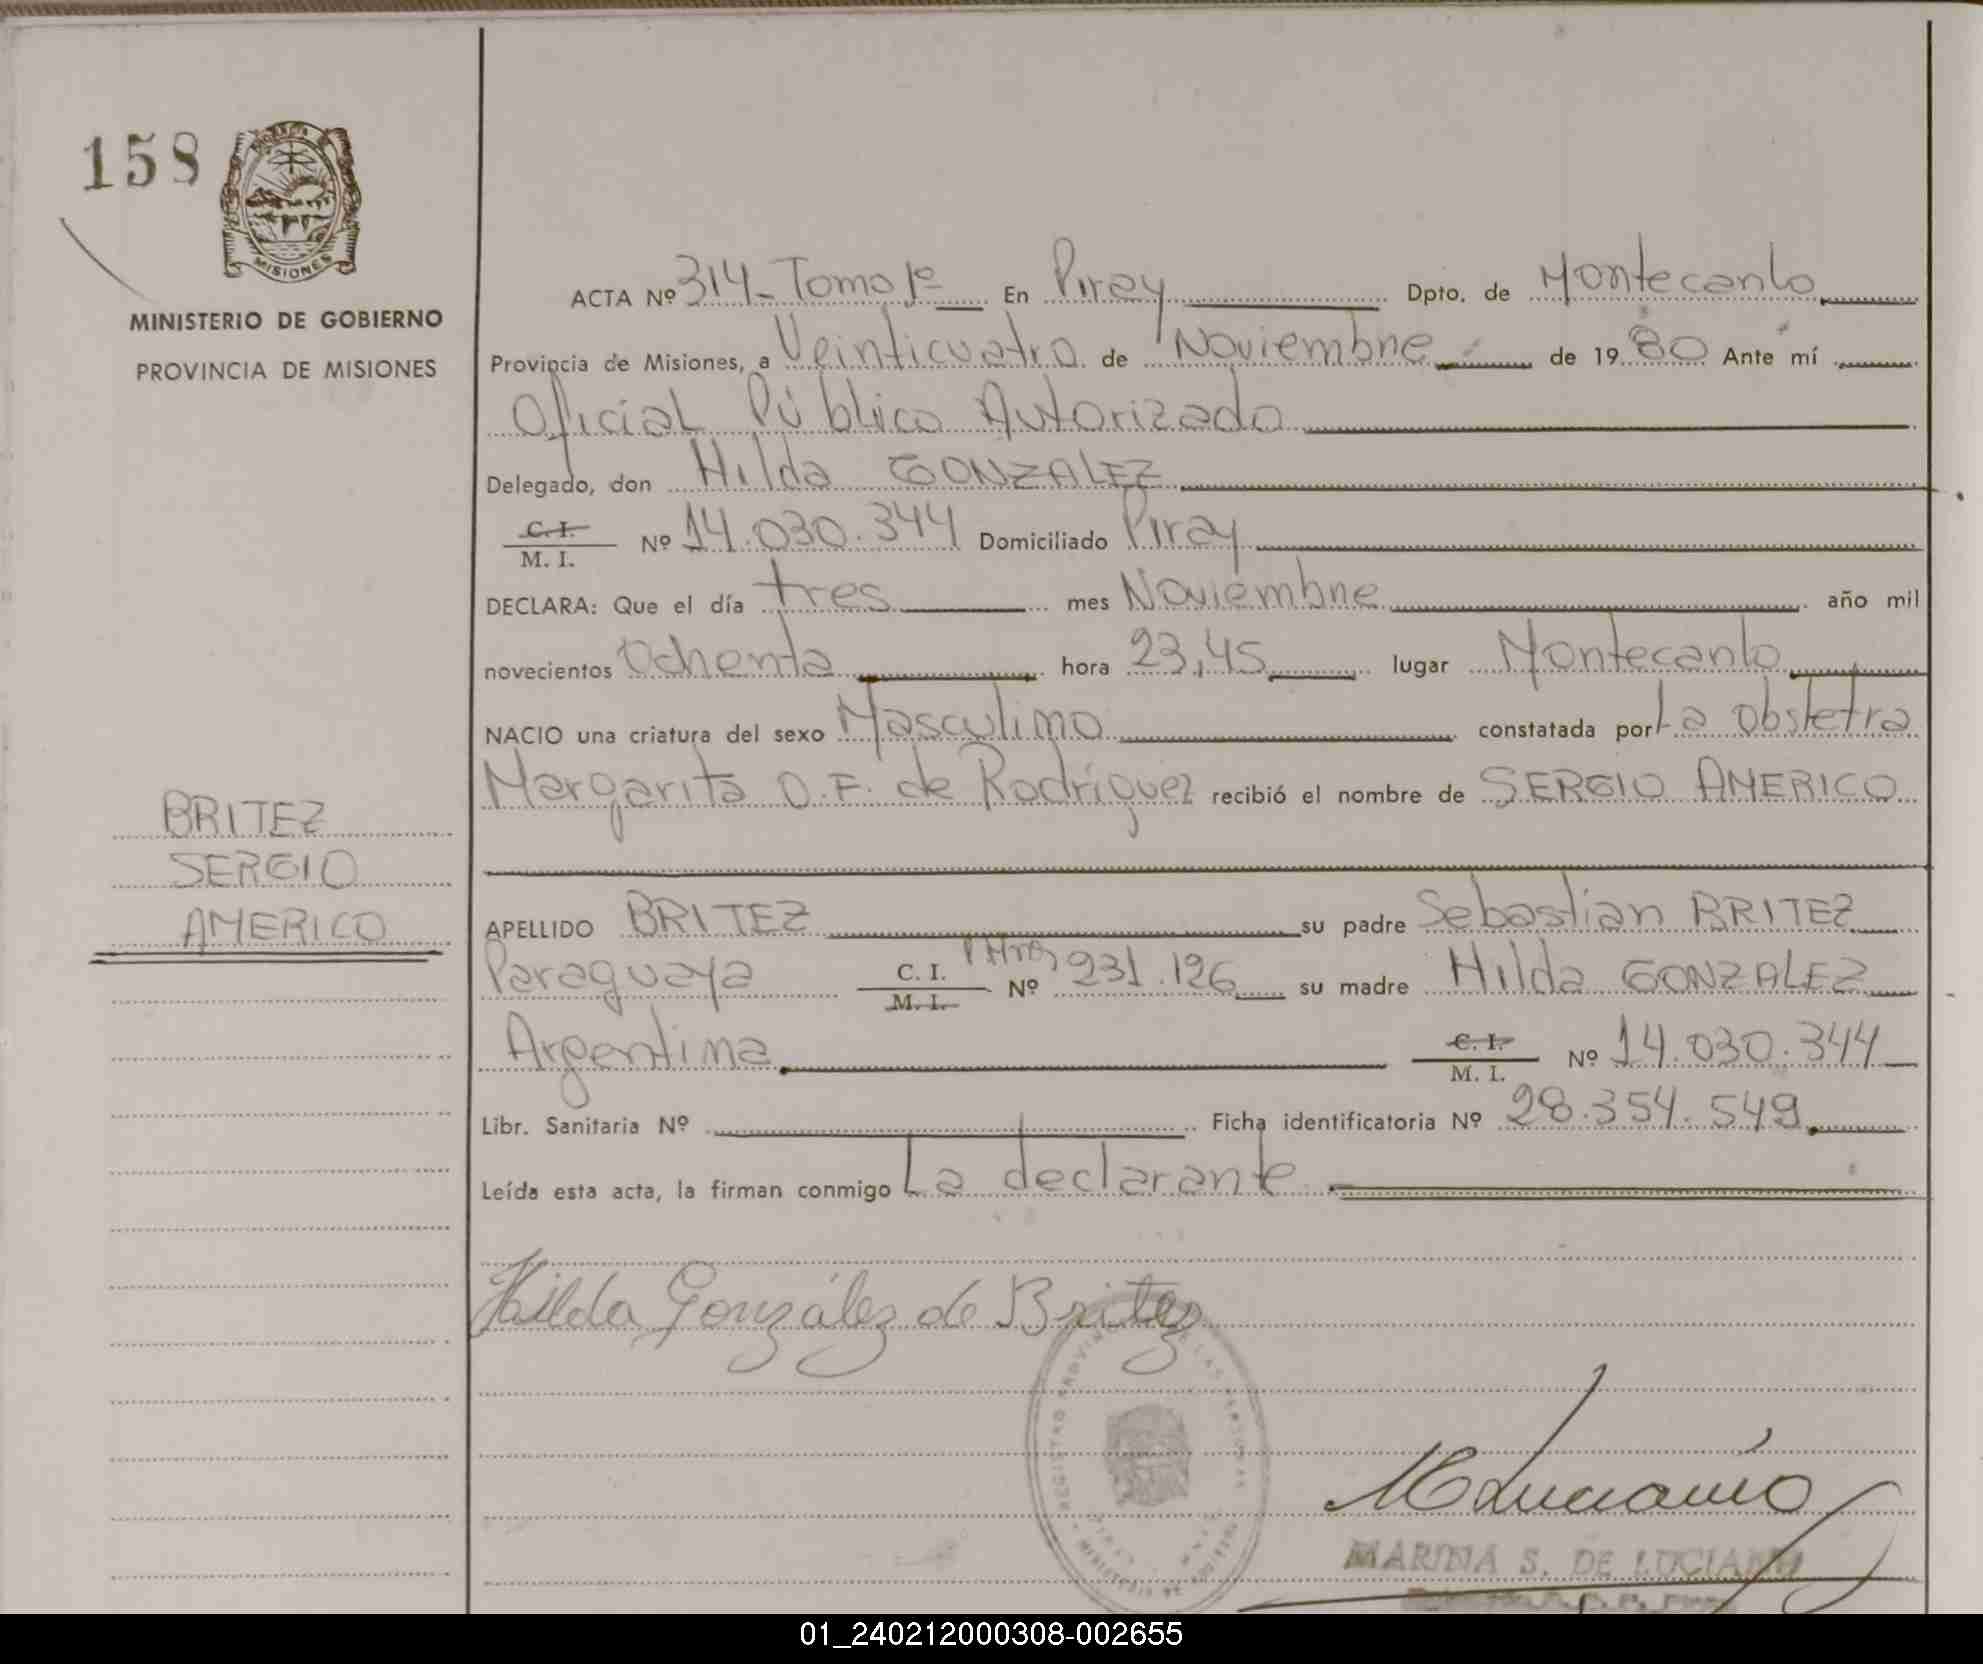 158
MISIONES
MINISTERIO DE GOBIERNO
PROVINCIA DE MISIONES
BRITEZ
SERGIO
AMERICO
ACTA Nº 314- Tomo 1º En Piray Dpto. de Montecarlo
Provincia de Misiones, a Veinticuatro de Noviembre de 19 80 Ante mí
Oficial Público Autorizado
Delegado, don Hilda GONZALEZ
C. I.
M. I. Nº 14.030.344 Domiciliado Piray
DECLARA: Que el día tres mes Noviembre año mil
novecientos Ochenta hora 23,45 lugar Montecarlo
NACIO una criatura del sexo Masculino constatada por La obstetra
Margarita O.F. de Rodríguez recibió el nombre de SERGIO AMERICO
APELLIDO BRITEZ su padre Sebastian BRITEZ
Paraguaya C. I. M. I. Nº 231.126 su madre Hilda GONZALEZ
Argentina C. I. M. I. Nº 14.030.344
Libr. Sanitaria Nº Ficha identificatoria Nº 28.354.549
Leída esta acta, la firman conmigo La declarante
Hilda González de Britez
MARINA S. DE LUCIANO
01_240212000308-002655